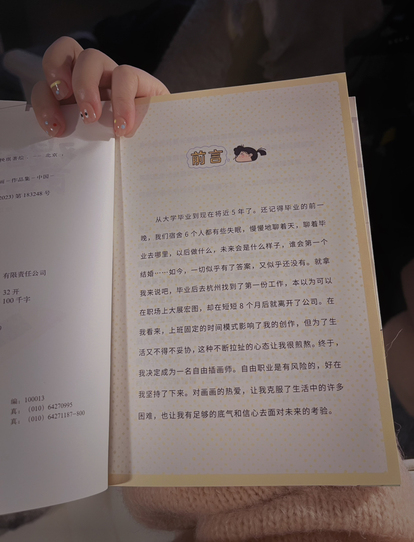 2023) 第 183248 号
有限责任公司
32 开
100 千字
编:100013
真:(010) 64270995
真:(010) 64271187-800
前言
从大学毕业到现在将近 5 年了。还记得毕业的前一
晚,我们宿舍 6 个人都有些失眠,慢慢地聊着天,聊着毕
业去哪里,以后做什么,未来会是什么样子,谁会第一个
结婚……如今,一切似乎有了答案,又似乎还没有。就拿
我来说吧,毕业后去杭州找到了第一份工作,本以为可以
在职场上大展宏图,却在短短 8 个月后就离开了公司。在
我看来,上班固定的时间模式影响了我的创作,但为了生
活又不得不妥协,这种不断拉扯的心态让我很煎熬。终于,
我决定成为一名自由插画师。自由职业是有风险的,好在
我坚持了下来。对画画的热爱,让我克服了生活中的许多
困难,也让我有足够的底气和信心去面对未来的考验。